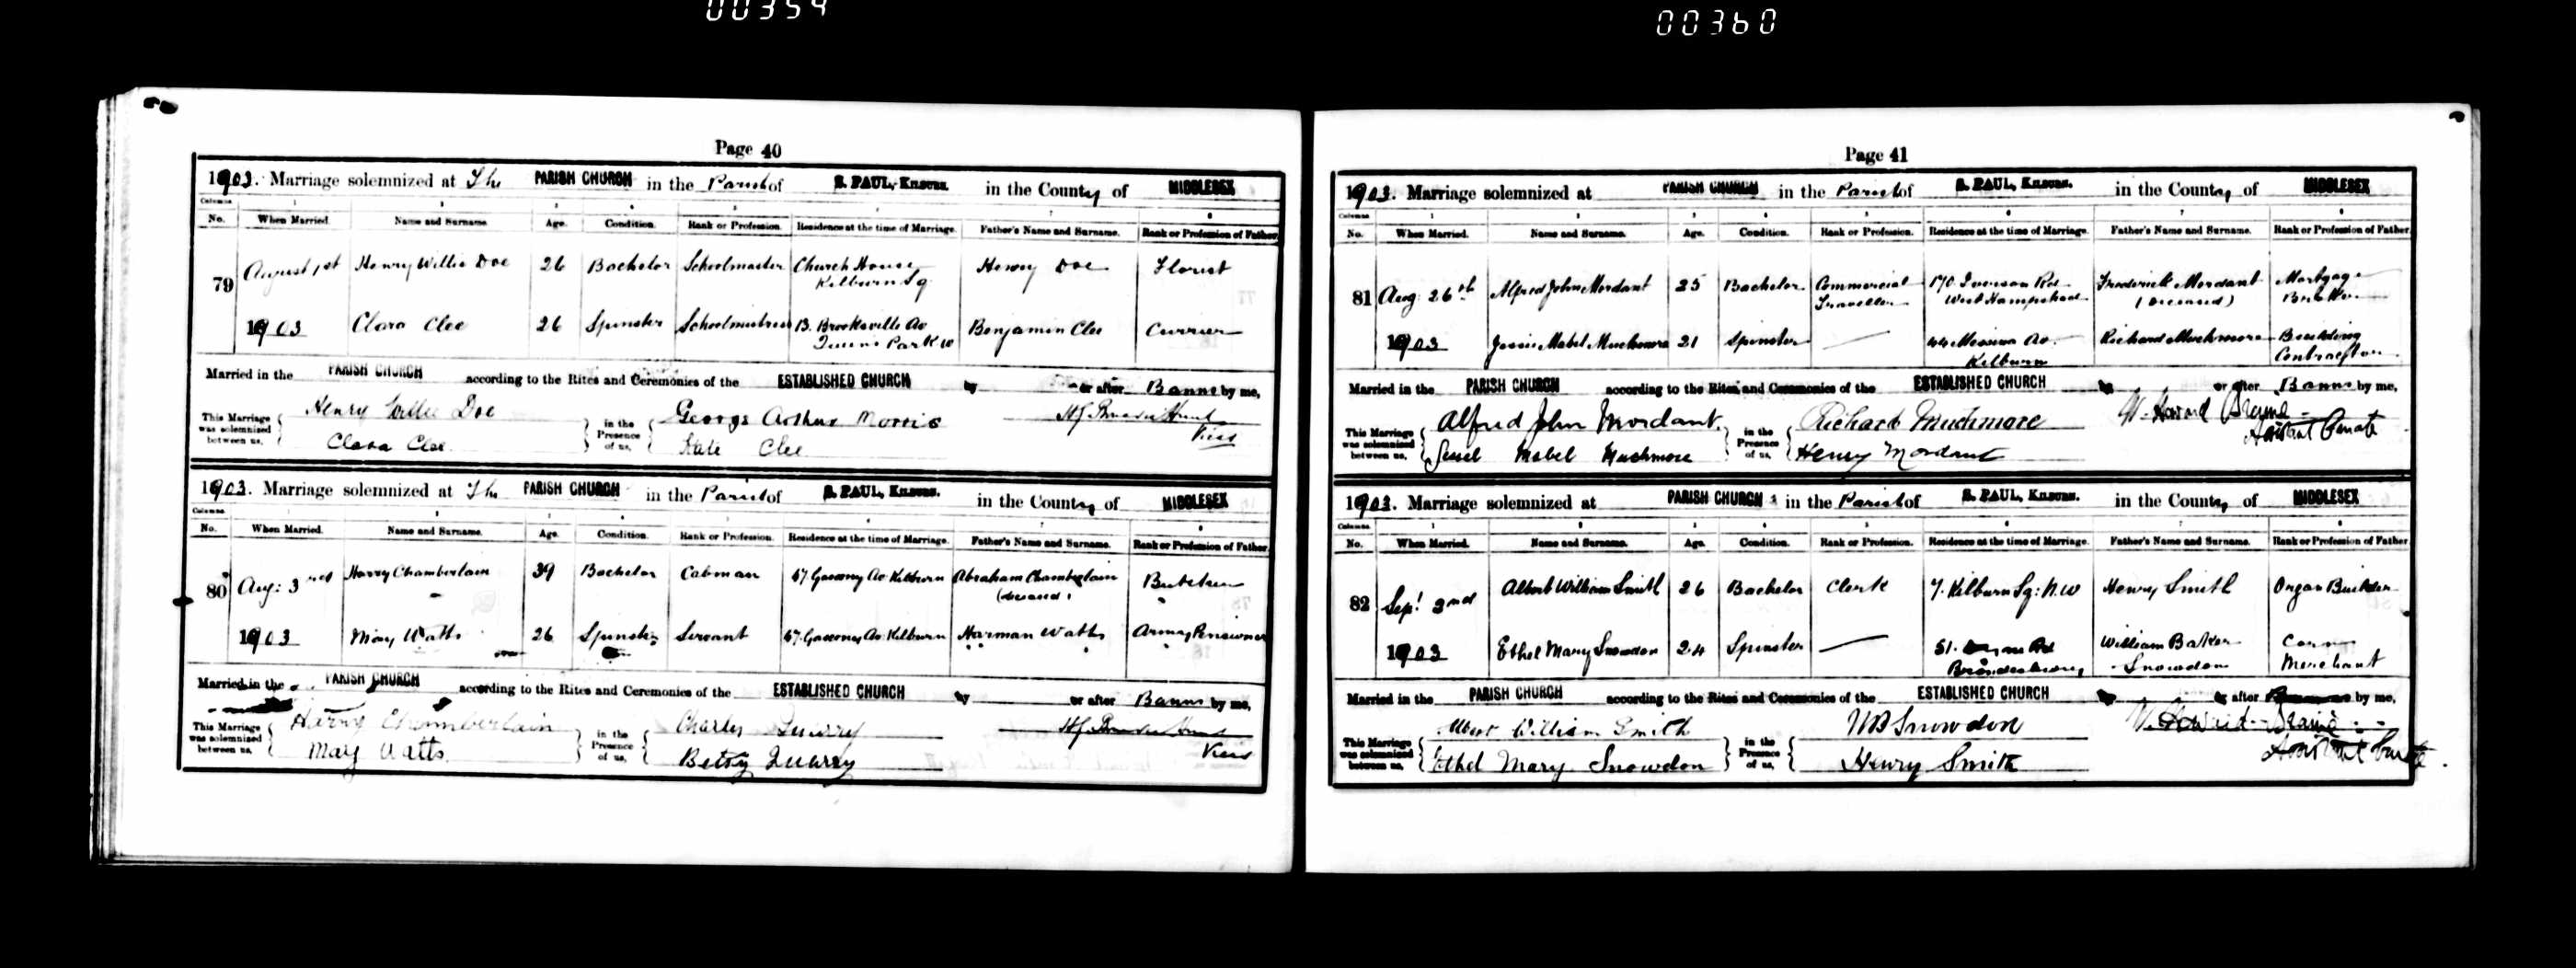 00359
00360
Page 40
1903. Marriage solemnized at The PARISH CHURCH in the Parish of S. PAUL, KILBURN. in the County of MIDDLESEX
Columns. 1 2 3 4 5 6 7 8
No. When Married. Name and Surname. Age. Condition. Rank or Profession. Residence at the time of Marriage. Father's Name and Surname. Rank or Profession of Father.
79 August 1st Henry Willie Doe 26 Bachelor Schoolmaster Church House Henry Doe Florist
Kilburn Sq
1903 Clara Clee 26 Spinster Schoolmistress 13. Brooksville Av Benjamin Clee Currier
Queens Park W
Married in the PARISH CHURCH according to the Rites and Ceremonies of the ESTABLISHED CHURCH by or after Banns by me,
This Marriage was solemnized between us, Henry Willie Doe in the Presence of us, George Arthur Morris
Clara Clee Kate Clee Vicar
1903. Marriage solemnized at The PARISH CHURCH in the Parish of S. PAUL, KILBURN. in the County of MIDDLESEX
Columns. 1 2 3 4 5 6 7 8
No. When Married. Name and Surname. Age. Condition. Rank or Profession. Residence at the time of Marriage. Father's Name and Surname. Rank or Profession of Father.
80 Aug: 3rd Harry Chamberlain 39 Bachelor Cabman 47. Gascony Av Kilburn Abraham Chamberlain Butcher
(deceased)
1903 Mary Watts 26 Spinster Servant 47. Gascony Av Kilburn Harman Watts Army Pensioner
Married in the PARISH CHURCH according to the Rites and Ceremonies of the ESTABLISHED CHURCH by or after Banns by me,
This Marriage was solemnized between us, Harry Chamberlain in the Presence of us, Charles Quarry
Mary Watts Betsy Quarry Vicar
Page 41
1903. Marriage solemnized at PARISH CHURCH in the Parish of S. PAUL, KILBURN. in the County of MIDDLESEX
Columns. 1 2 3 4 5 6 7 8
No. When Married. Name and Surname. Age. Condition. Rank or Profession. Residence at the time of Marriage. Father's Name and Surname. Rank or Profession of Father.
81 Aug: 26th Alfred John Mordant 25 Bachelor Commercial 170. Iverson Rd Frederick Mordant Mortgage
Traveller West Hampstead (deceased) Broker
1903 Jessie Mabel Muchmore 21 Spinster 44 Messina Av. Richard Muchmore Building
Kilburn Contractor
Married in the PARISH CHURCH according to the Rites and Ceremonies of the ESTABLISHED CHURCH by or after Banns by me,
This Marriage was solemnized between us, Alfred John Mordant in the Presence of us, Richard Muchmore W. Howard
Jessie Mabel Muchmore Henry Mordant Assistant Curate
1903. Marriage solemnized at PARISH CHURCH in the Parish of S. PAUL, KILBURN. in the County of MIDDLESEX
Columns. 1 2 3 4 5 6 7 8
No. When Married. Name and Surname. Age. Condition. Rank or Profession. Residence at the time of Marriage. Father's Name and Surname. Rank or Profession of Father.
82 Sept 2nd Albert William Smith 26 Bachelor Clerk 7. Kilburn Sq: N.W Henry Smith Organ Builder
1903 Ethel Mary Snowdon 24 Spinster 51. Rd William Baker Corn
Brondesbury Snowdon Merchant
Married in the PARISH CHURCH according to the Rites and Ceremonies of the ESTABLISHED CHURCH by or after Banns by me,
This Marriage was solemnized between us, Albert William Smith in the Presence of us, WB Snowdon W. Howard
Ethel Mary Snowdon Henry Smith Assistant Curate